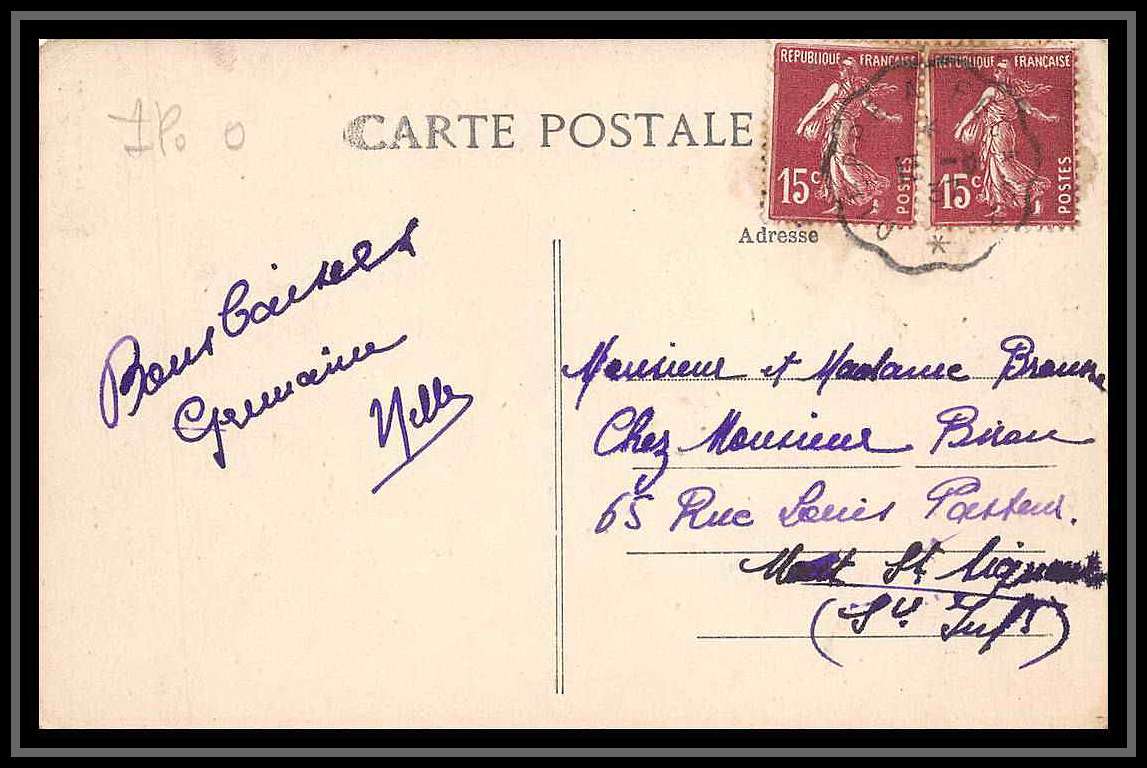 CARTE POSTALE
REPUBLIQUE FRANÇAISE
15c POSTES
REPUBLIQUE FRANÇAISE
15c POSTES
Adresse
Bons baisers
Germaine
Monsieur et Madame
Chez Monsieur
65 Rue Louis Pasteur.
Mont St Aignan
(Se. Infre)